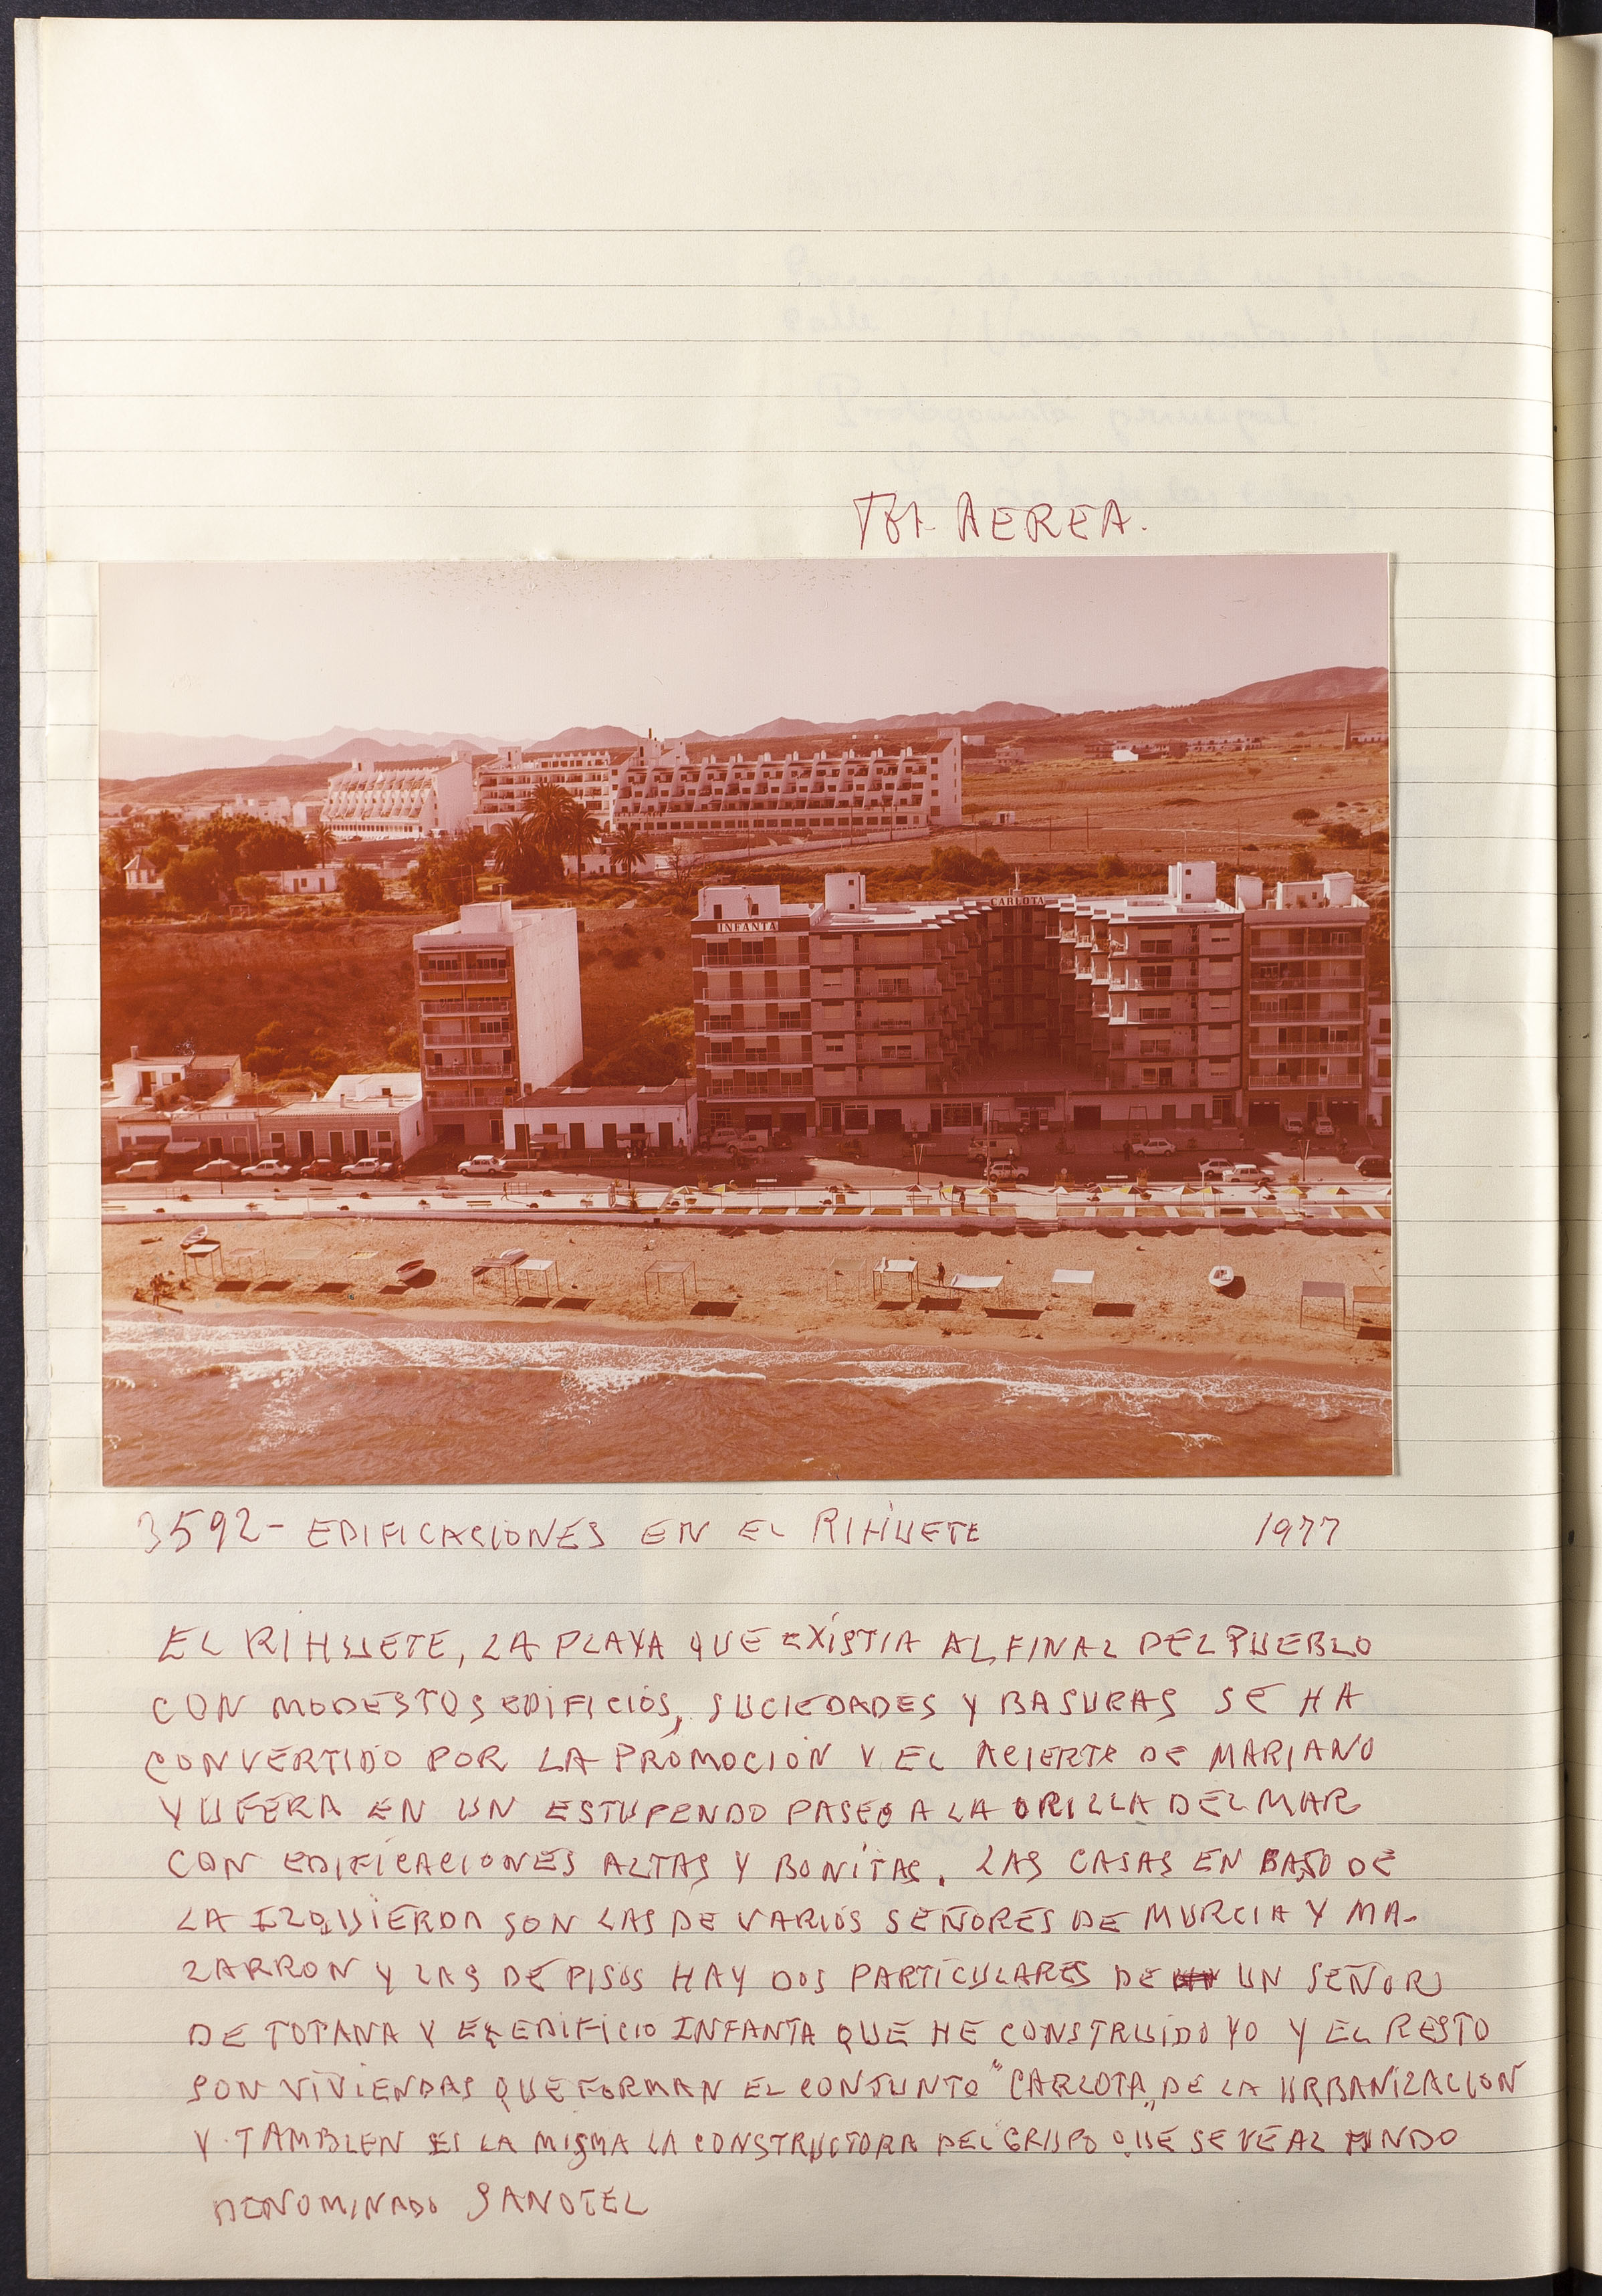 FOT. AEREA.
INFANTA
CARLOTA
3592- EDIFICACIONES EN EL RIHUETE 1977
EL RIHUETE, LA PLAYA QUE EXISTIA AL FINAL DEL PUEBLO
CON MODESTOS EDIFICIOS, SUCIEDADES Y BASURAS SE HA
CONVERTIDO POR LA PROMOCION Y EL ACIERTO DE MARIANO
YUFERA EN UN ESTUPENDO PASEO A LA ORILLA DEL MAR
CON EDIFICACIONES ALTAS Y BONITAS. LAS CASAS EN BAJO DE
LA IZQUIERDA SON LAS DE VARIOS SEÑORES DE MURCIA Y MA-
ZARRON Y LAS DE PISOS HAY DOS PARTICULARES DE UN SEÑOR
DE TOTANA Y EL EDIFICIO INFANTA QUE HE CONSTRUIDO YO Y EL RESTO
SON VIVIENDAS QUE FORMAN EL CONJUNTO "CARLOTA" DE LA URBANIZACION
Y TAMBIEN ES LA MISMA LA CONSTRUCTORA DEL GRUPO QUE SE VE AL FONDO
DENOMINADO SANOTEL